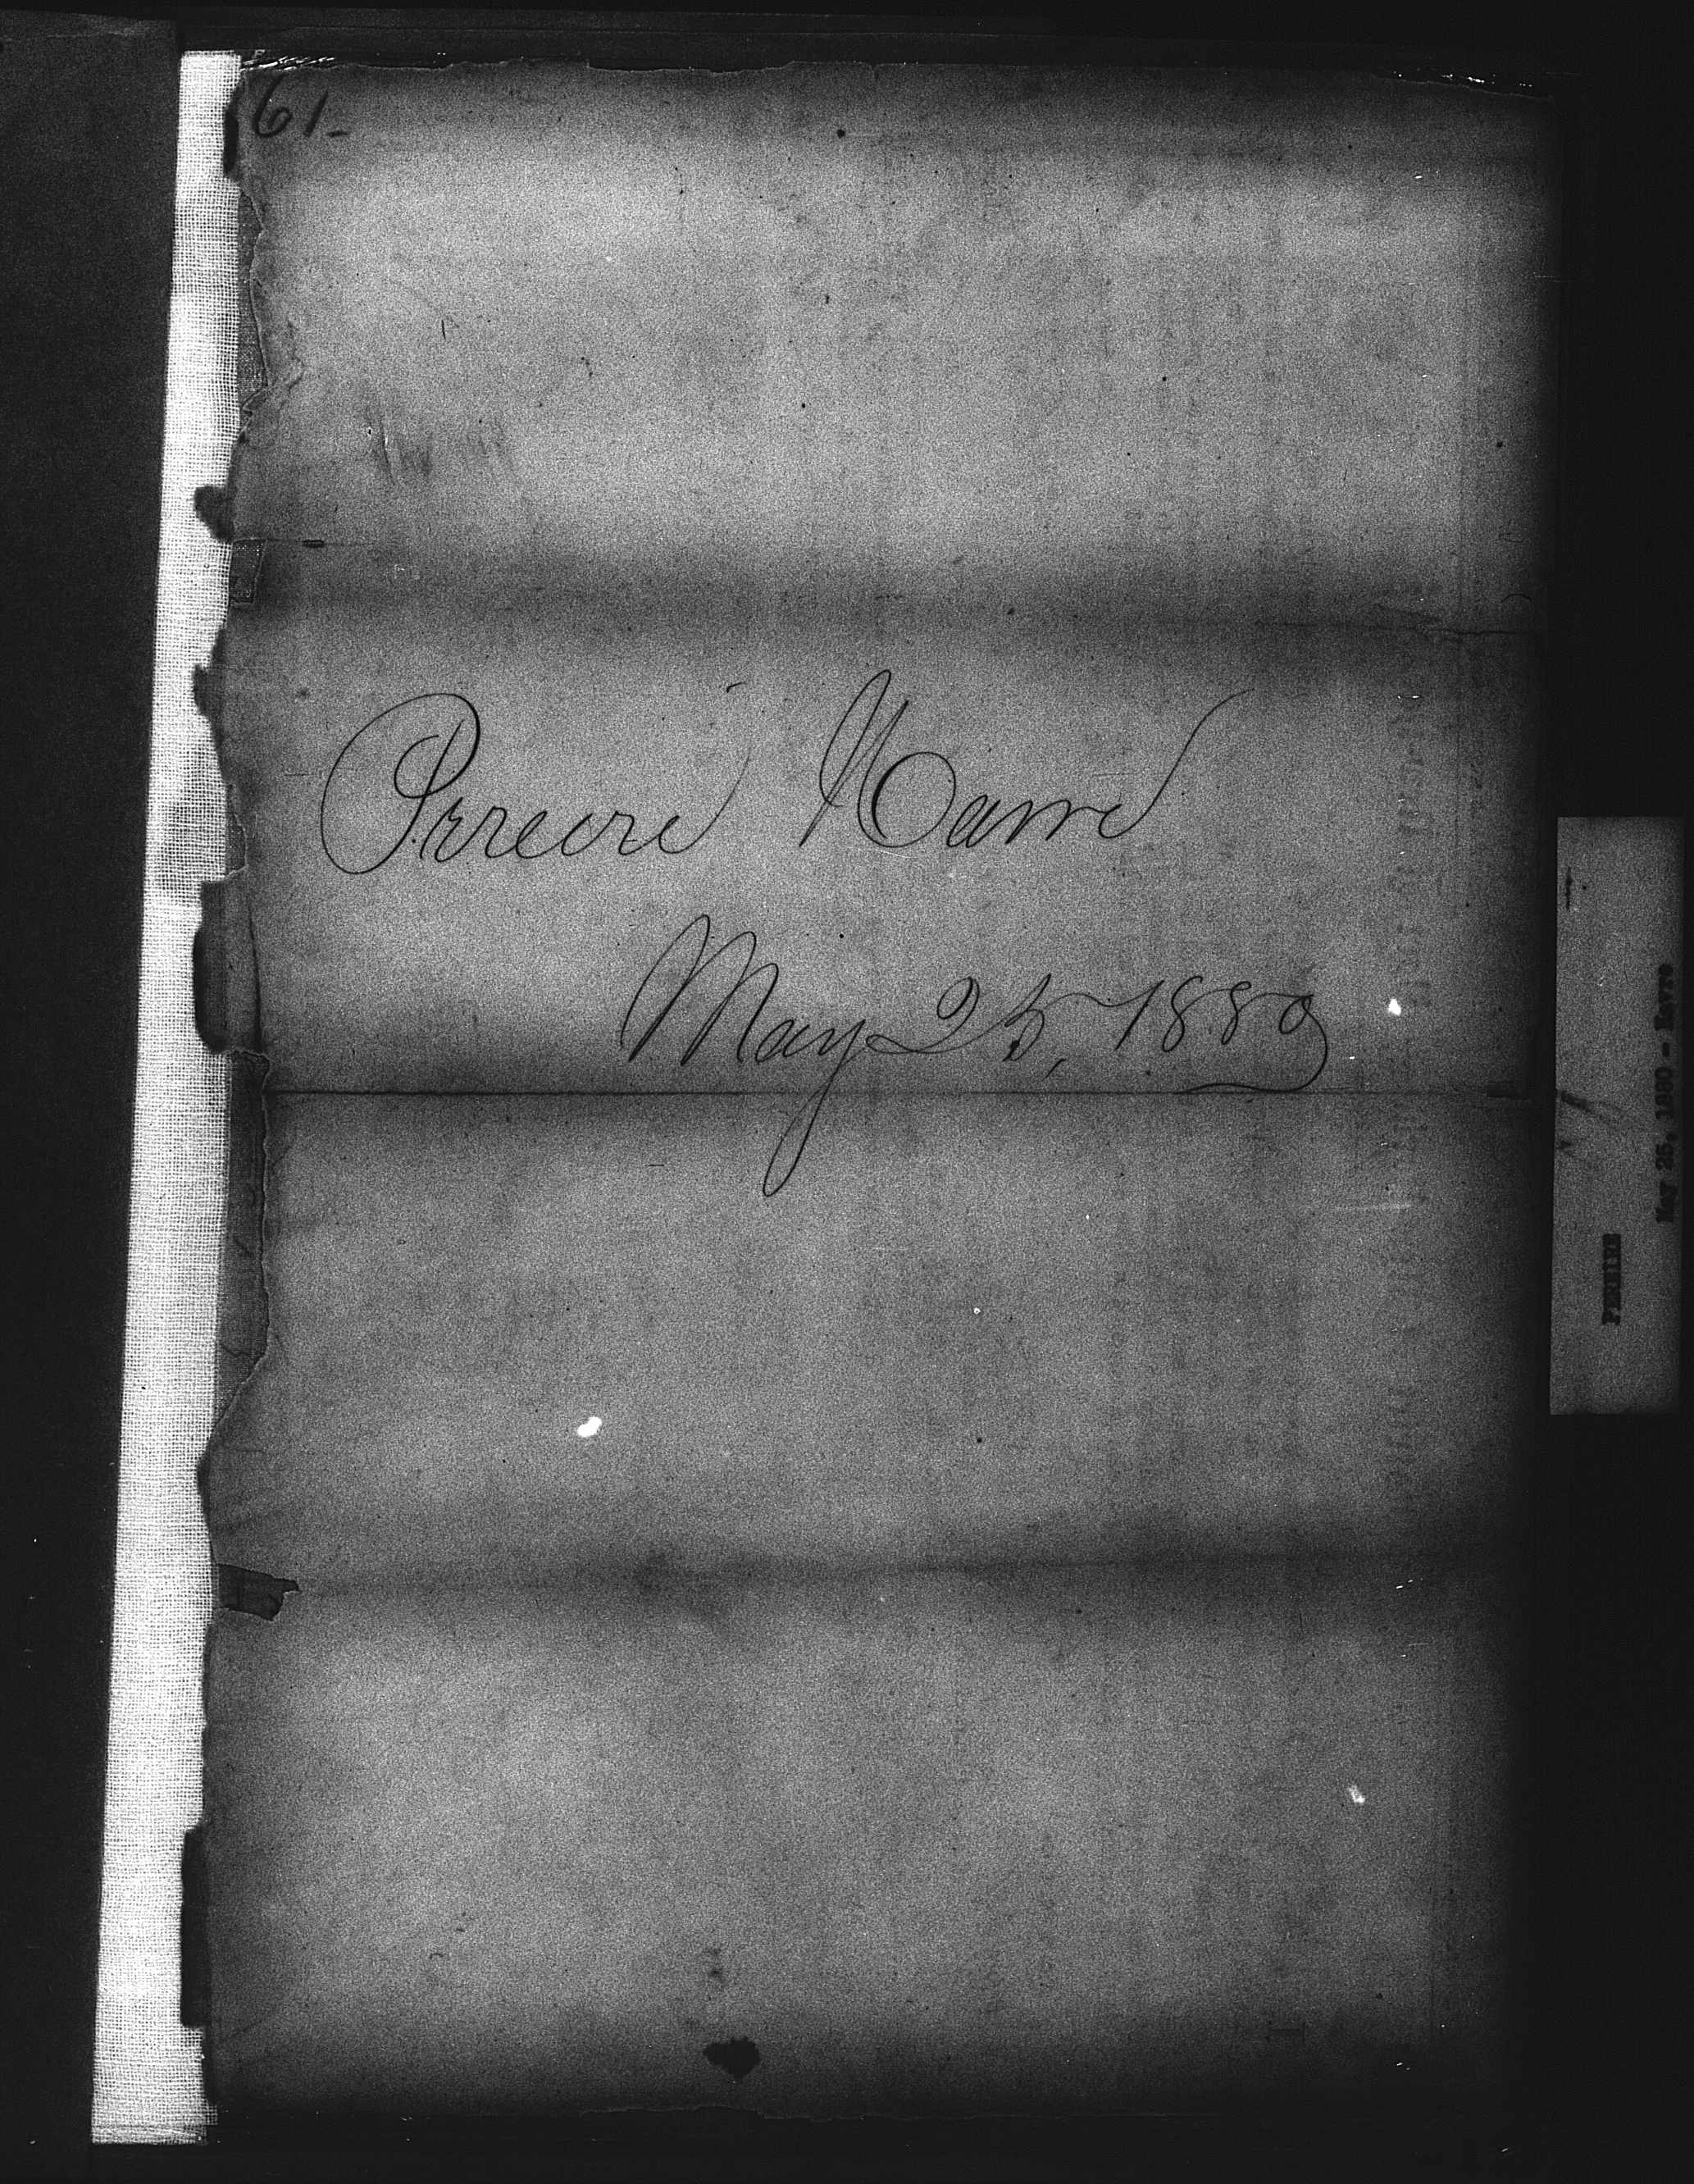 61-
Perreire Havre
May 25, 1880
PERIERE
May 25, 1880 - Havre